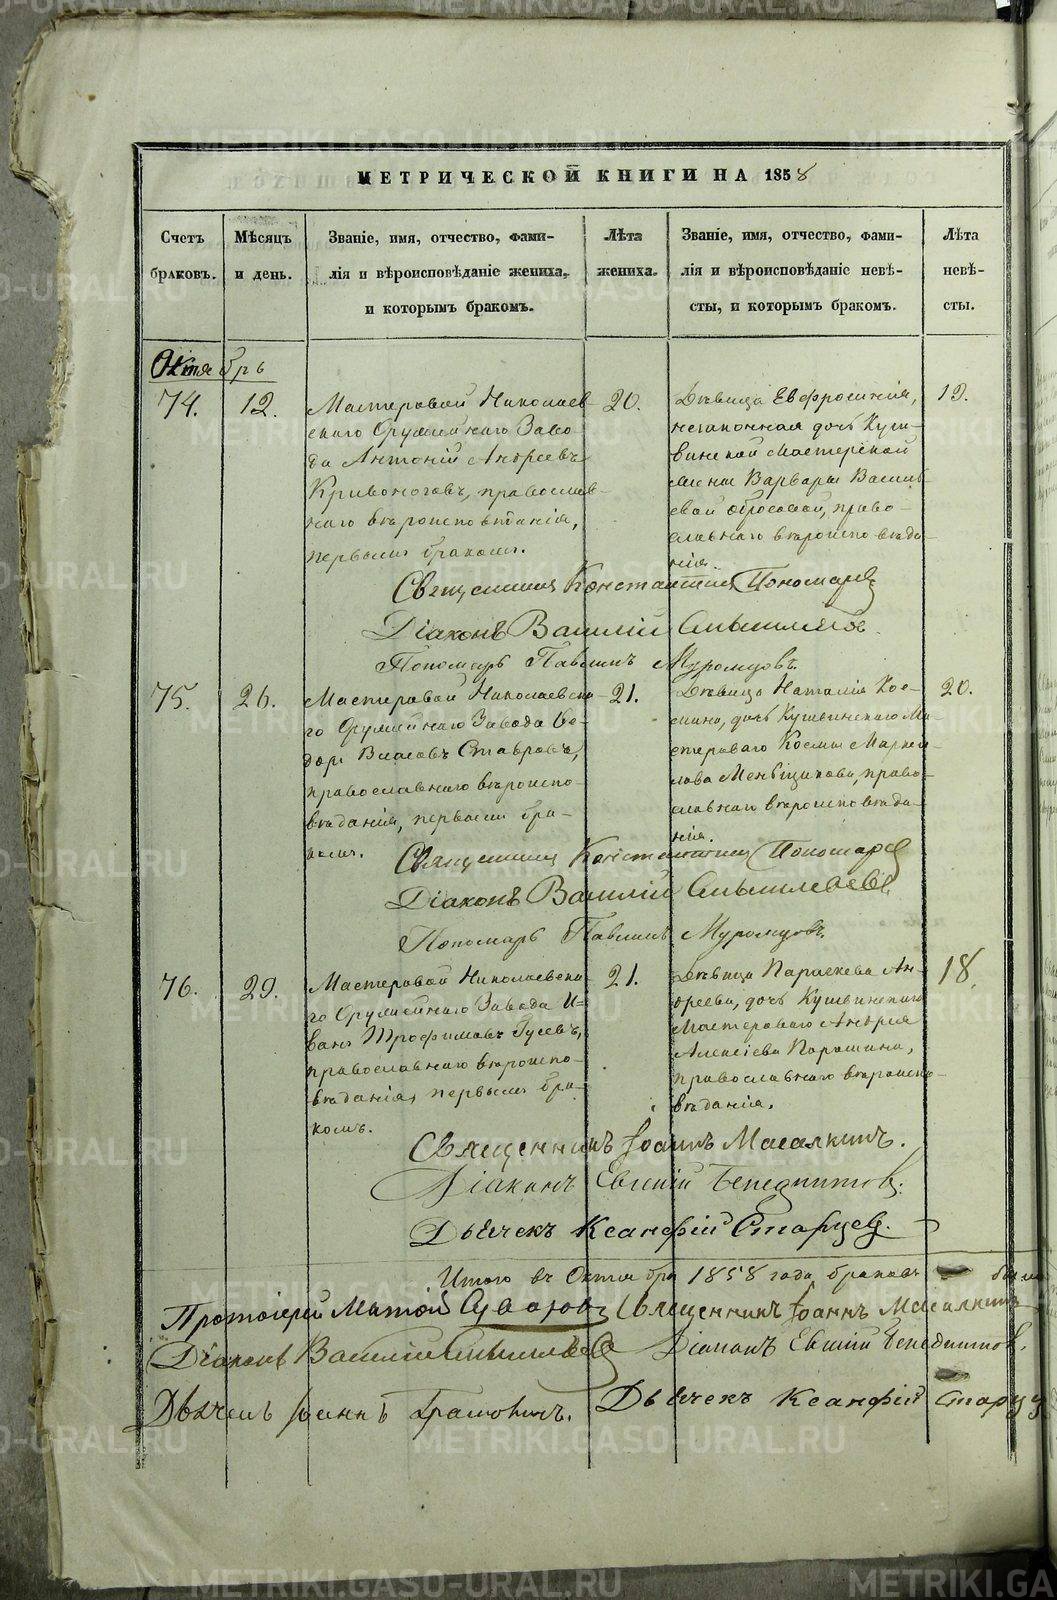 МЕТРИЧЕСКОЙ КНИГИ НА 1858
Счетъ браковъ.
Мѣсяцъ и день.
Званіе, имя, отчество, фами-
лія и вѣроисповѣданіе жениха,
и которымъ бракомъ.
Лѣта жениха.
Званіе, имя, отчество, фами-
лія и вѣроисповѣданіе невѣ-
сты, и которымъ бракомъ.
Лѣта невѣ-
сты.
Октябрь
74.
12.
Мастеровой Николаев-
скаго Оружейнаго Заво-
да Антоній Андреевъ
Кривоноговъ, православ-
наго вѣроисповѣданія,
первымъ бракомъ.
20.
Дѣвица Евфросинія,
незаконная дочь Куш-
винской мастерской
жены Варвары Василь
евой, право-
славнаго вѣроисповѣда-
нія.
19.
Священникъ Константинъ Пономаревъ
Діаконъ Василій
Пономарь Павлинъ Муромцовъ.
75.
26.
Мастеровой Николаевска-
го Оружейнаго Завода Ѳе-
доръ Власовъ Ставровъ,
православнаго вѣроиспо-
вѣданія, первымъ бра-
комъ.
21.
Дѣвица Наталія Кос-
мина, дочь Кушвинскаго Ма-
стероваго Космы Маркел-
лова Меньщикова, право-
славнаго вѣроисповѣда-
нія.
20.
Священникъ Константинъ Пономаревъ
Діаконъ Василій
Пономарь Павлинъ Муромцовъ.
76.
29.
Мастеровой Николаевска-
го Оружейнаго Завода И-
ванъ Трофимовъ Гусевъ,
православнаго вѣроиспо-
вѣданія, первымъ бра-
комъ.
21.
Дѣвица Параскева Ан-
дреева, дочь Кушвинскаго
Мастероваго Андрея
Алексіева Паршина,
православнаго вѣроиспо-
вѣданія.
18.
Священникъ Іоаннъ Масалкинъ.
Діаконъ Евгеній Бенедиктовъ.
Дьячекъ Ксанфій Старцевъ.
Итого въ Октябрѣ 1858 года браковъ было
Протоіерей Матѳей Священникъ Іоаннъ Масалкинъ
Діаконъ Василій Діаконъ Евгеній Бенедиктовъ.
Дьячекъ Іоаннъ Дьячекъ Ксанфій Старц
METRIKI.GASO-URAL.RU